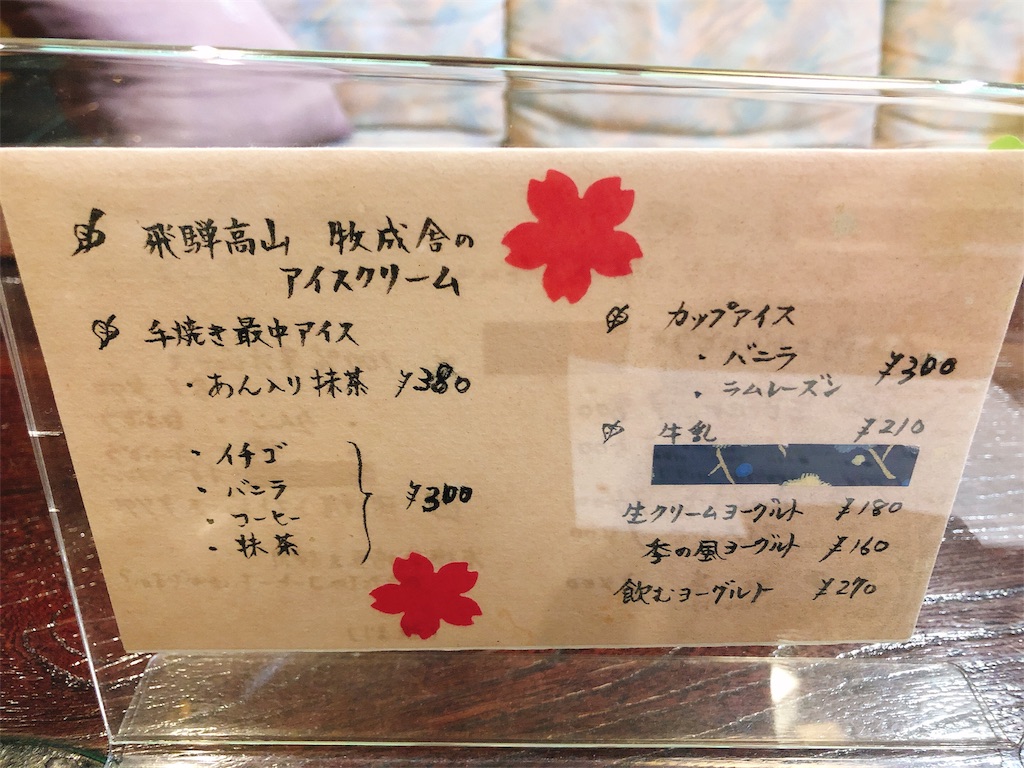 飛騨高山 牧成舎の
アイスクリーム
手焼き最中アイス
・あん入り抹茶 ¥380
・イチゴ
・バニラ
・コーヒー
・抹茶
¥300
カップアイス
・バニラ
・ラムレーズン
¥300
牛乳 ¥210
生クリームヨーグルト ¥180
季の風ヨーグルト ¥160
飲むヨーグルト ¥270